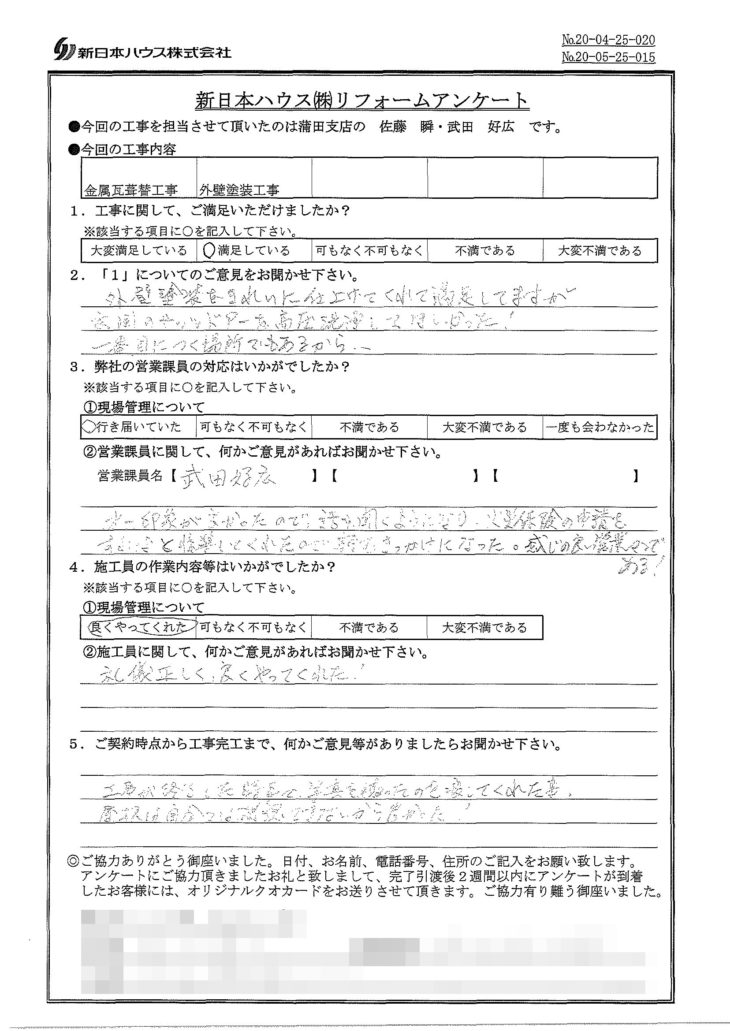 新日本ハウス株式会社
№20-04-25-020
№20-05-25-015
新日本ハウス㈱リフォームアンケート
●今回の工事を担当させて頂いたのは蒲田支店の 佐藤 瞬・武田 好広 です。
●今回の工事内容
金属瓦葺替工事 外壁塗装工事
1．工事に関して、ご満足いただけましたか？
※該当する項目に○を記入して下さい。
大変満足している ○満足している 可もなく不可もなく 不満である 大変不満である
2．「1」についてのご意見をお聞かせ下さい。
外壁塗装をきれいに仕上げてくれて満足してますが
玄関のサッシドアーを高圧洗浄してほしかった！
一番目につく場所でもあるから、
3．弊社の営業課員の対応はいかがでしたか？
※該当する項目に○を記入して下さい。
①現場管理について
○行き届いていた 可もなく不可もなく 不満である 大変不満である 一度も会わなかった
②営業課員に関して、何かご意見があればお聞かせ下さい。
営業課員名【武田好広 】【 】【 】
第一印象が良かったので話を聞くようになり、火災保険の申請を
と提案してくれたので きっかけになった。感じの良い営業マンで
ある！
4．施工員の作業内容等はいかがでしたか？
※該当する項目に○を記入して下さい。
①現場管理について
良くやってくれた 可もなく不可もなく 不満である 大変不満である
②施工員に関して、何かご意見があればお聞かせ下さい。
礼儀正しく、良くやってくれた！
5．ご契約時点から工事完工まで、何かご意見等がありましたらお聞かせ下さい。
工事が終了した時点で、写真を撮ったのを渡してくれた事、
屋根は自分では確認できないから良かった！
◎ご協力ありがとう御座いました。日付、お名前、電話番号、住所のご記入をお願い致します。
アンケートにご協力頂きましたお礼と致しまして、完了引渡後２週間以内にアンケートが到着
したお客様には、オリジナルクオカードをお送りさせて頂きます。ご協力有り難う御座いました。